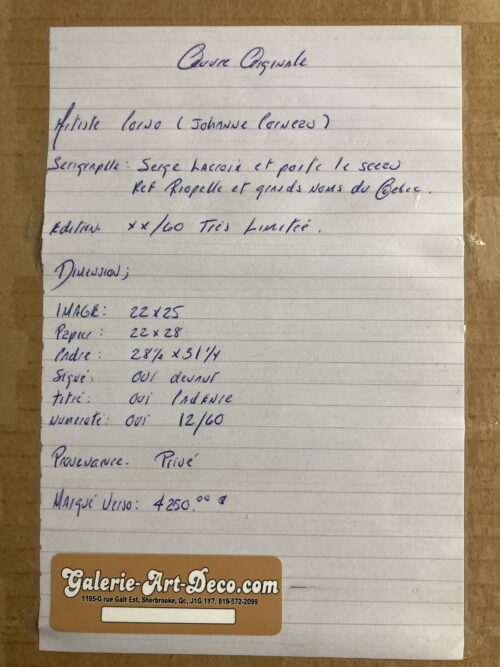 Œuvre Originale
Artiste Corno (Johanne Corneau)
Serigraphe: Serge Lacroix et porte le sceau
Ref Riopelle et grands noms du Québec.
Edition. xx/60 Très Limitée.
Dimension;
IMAGE: 22x25
Papier: 22x28
Cadre: 28½ x 31¼
Signé: oui devant
titré: oui Cadence
numeroté: oui 12/60
Provenance. Privé
Marqué Verso: 4250.00 $
Galerie-Art-Deco.com
1195-G rue Galt Est, Sherbrooke, Qc, J1G 1Y7, 819-572-2099